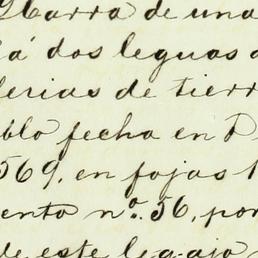 Ibarra de una
á dos leguas
lerias de tierr
blo fecha en D
569, en fojas 1
ento nº. 56, por
de este legajo